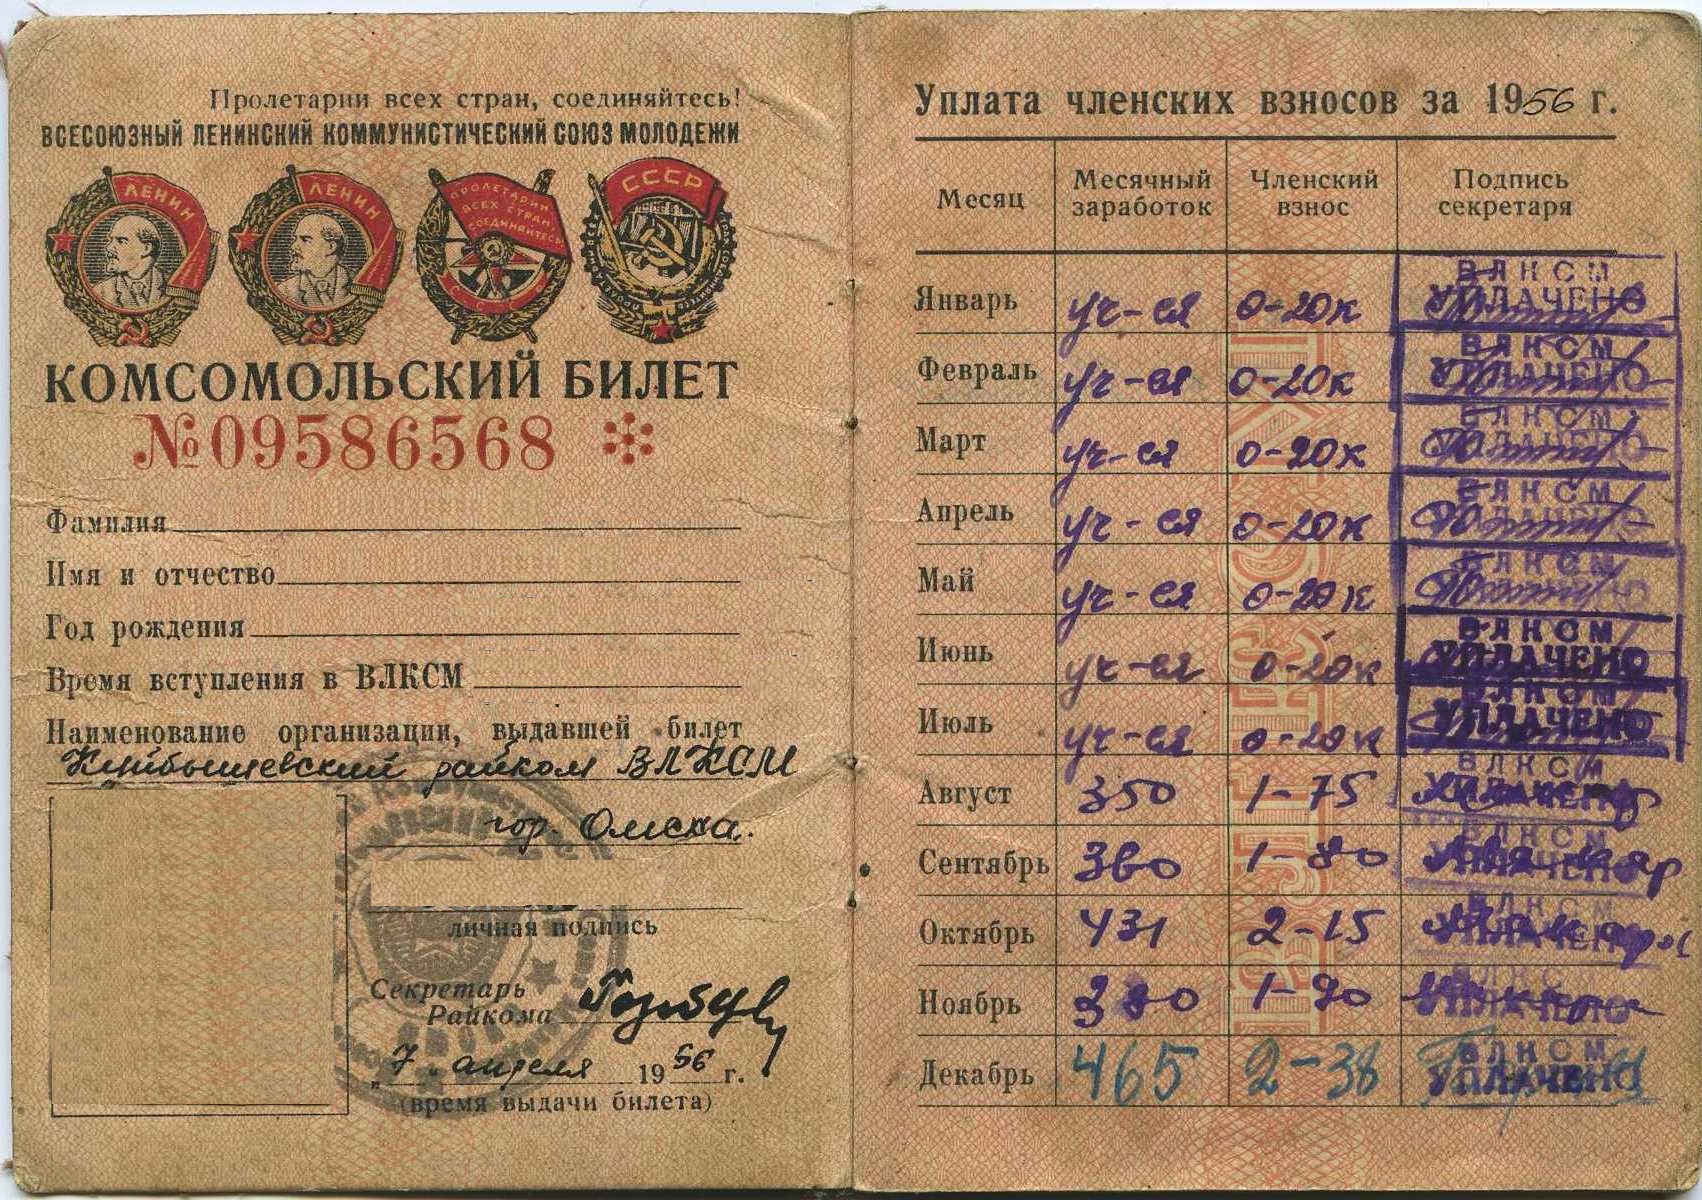 Пролетарии всех стран, соединяйтесь!
ВСЕСОЮЗНЫЙ ЛЕНИНСКИЙ КОММУНИСТИЧЕСКИЙ СОЮЗ МОЛОДЕЖИ
ЛЕНИН
ЛЕНИН
ПРОЛЕТАРИИ ВСЕХ СТРАН, СОЕДИНЯЙТЕСЬ!
СССР
КОМСОМОЛЬСКИЙ БИЛЕТ
№ 09586568
Фамилия
Имя и отчество
Год рождения
Время вступления в ВЛКСМ
Наименование организации, выдавшей билет
Куйбышевский райком ВЛКСМ
гор. Омска.
личная подпись
Секретарь
Райкома
„7" апреля 1956 г.
(время выдачи билета)
Уплата членских взносов за 1956 г.
Месяц Месячный заработок Членский взнос Подпись секретаря
Январь уч-ся 0-20к ВЛКСМ УПЛАЧЕНО
Февраль уч-ся 0-20к ВЛКСМ УПЛАЧЕНО
Март уч-ся 0-20к ВЛКСМ УПЛАЧЕНО
Апрель уч-ся 0-20к ВЛКСМ УПЛАЧЕНО
Май уч-ся 0-20к ВЛКСМ УПЛАЧЕНО
Июнь уч-ся 0-20к ВЛКСМ УПЛАЧЕНО
Июль уч-ся 0-20к ВЛКСМ УПЛАЧЕНО
Август 350 1-75 ВЛКСМ УПЛАЧЕНО
Сентябрь 360 1-80 ВЛКСМ УПЛАЧЕНО
Октябрь 431 2-15 ВЛКСМ УПЛАЧЕНО
Ноябрь 380 1-90 ВЛКСМ УПЛАЧЕНО
Декабрь 465 2-38 ВЛКСМ УПЛАЧЕНО